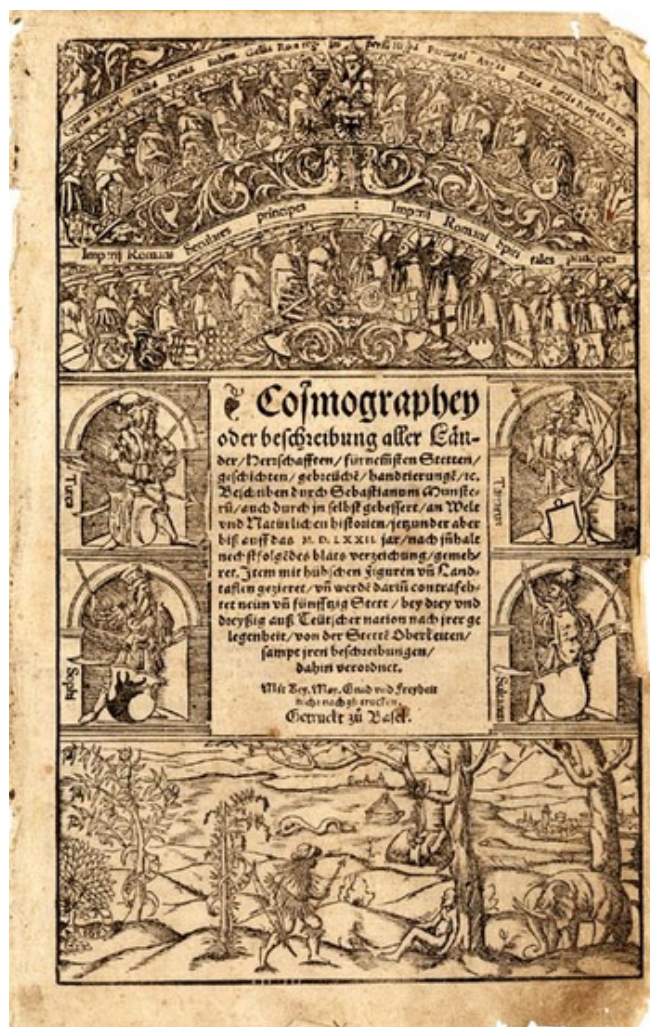 Imperij Romani Seculares principes : Imperij Romani spiri tales principes
Cosmographey
oder beschreibung aller Län-
der/Herrschafften/fürnem̃sten Stetten/
geschichten/gebreüchẽ/handtierungẽ/ꝛc.
Beschriben durch Sebastianum Munste-
rũ/auch durch in selbst gebessert/an Welt
vnd Natürlichen historien/jetzunder aber
biß auff das M. D. LXXII jar/nach jnhalt
nechstfolgẽdes blats verzeichung/gemeh-
ret. Item mit hübschen figuren vñ Land-
taflen gezieret/vñ werdẽ dariñ contrafeh-
tet neün vñ fünfftzig Stett/bey drey vnd
dreyßig auß Teütscher nation nach jrer ge
legenheit/von der Stettẽ Oberkeiten/
sampt jren beschreibungen/
dahin verordnet.
Mit Key. May. Gnad vnd Freyheit
nicht nach zů trucken.
Getruckt zů Basel.
Turca
Sophi
Soldanus